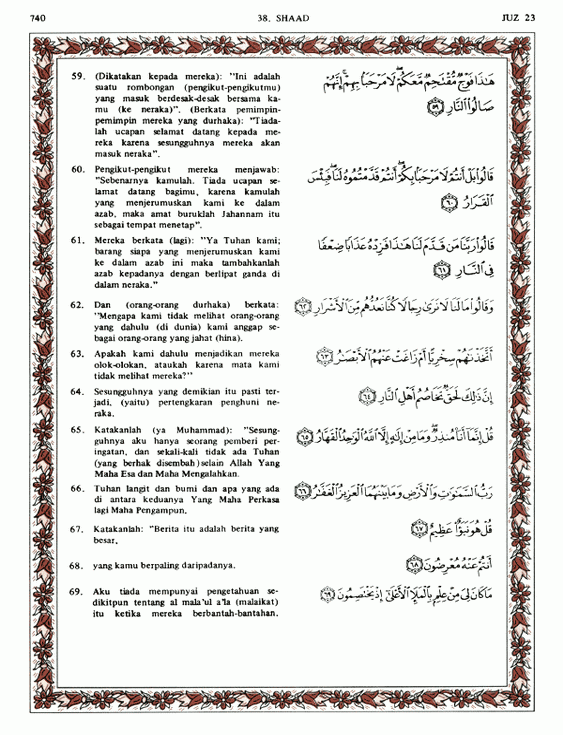 740
38. SHAAD
JUZ 23
59. (Dikatakan kepada mereka): "Ini adalah
suatu rombongan (pengikut-pengikutmu)
yang masuk berdesak-desak bersama ka-
mu (ke neraka)". (Berkata pemimpin-
pemimpin mereka yang durhaka): "Tiada-
lah ucapan selamat datang kepada me-
reka karena sesungguhnya mereka akan
masuk neraka".
هَٰذَا فَوْجٌ مُّقْتَحِمٌ مَّعَكُمْ ۖ لَا مَرْحَبًا بِهِمْ ۚ إِنَّهُمْ
صَالُوا النَّارِ ﴿٥٩﴾
60. Pengikut-pengikut mereka menjawab:
"Sebenarnya kamulah. Tiada ucapan se-
lamat datang bagimu, karena kamulah
yang menjerumuskan kami ke dalam
azab, maka amat buruklah Jahannam itu
sebagai tempat menetap".
قَالُوا بَلْ أَنتُمْ لَا مَرْحَبًا بِكُمْ ۖ أَنتُمْ قَدَّمْتُمُوهُ لَنَا ۖ فَبِئْسَ
الْقَرَارُ ﴿٦٠﴾
61. Mereka berkata (lagi): "Ya Tuhan kami;
barang siapa yang menjerumuskan kami
ke dalam azab ini maka tambahkanlah
azab kepadanya dengan berlipat ganda di
dalam neraka."
قَالُوا رَبَّنَا مَن قَدَّمَ لَنَا هَٰذَا فَزِدْهُ عَذَابًا ضِعْفًا
فِي النَّارِ ﴿٦١﴾
62. Dan (orang-orang durhaka) berkata:
"Mengapa kami tidak melihat orang-orang
yang dahulu (di dunia) kami anggap se-
bagai orang-orang yang jahat (hina).
وَقَالُوا مَا لَنَا لَا نَرَىٰ رِجَالًا كُنَّا نَعُدُّهُم مِّنَ الْأَشْرَارِ ﴿٦٢﴾
63. Apakah kami dahulu menjadikan mereka
olok-olokan, ataukah karena mata kami
tidak melihat mereka?"
أَتَّخَذْنَاهُمْ سِخْرِيًّا أَمْ زَاغَتْ عَنْهُمُ الْأَبْصَارُ ﴿٦٣﴾
64. Sesungguhnya yang demikian itu pasti ter-
jadi, (yaitu) pertengkaran penghuni ne-
raka.
إِنَّ ذَٰلِكَ لَحَقٌّ تَخَاصُمُ أَهْلِ النَّارِ ﴿٦٤﴾
65. Katakanlah (ya Muhammad): "Sesung-
guhnya aku hanya seorang pemberi per-
ingatan, dan sekali-kali tidak ada Tuhan
(yang berhak disembah) selain Allah Yang
Maha Esa dan Maha Mengalahkan.
قُلْ إِنَّمَا أَنَا مُنذِرٌ ۖ وَمَا مِنْ إِلَٰهٍ إِلَّا اللَّهُ الْوَاحِدُ الْقَهَّارُ ﴿٦٥﴾
66. Tuhan langit dan bumi dan apa yang ada
di antara keduanya Yang Maha Perkasa
lagi Maha Pengampun.
رَبُّ السَّمَاوَاتِ وَالْأَرْضِ وَمَا بَيْنَهُمَا الْعَزِيزُ الْغَفَّارُ ﴿٦٦﴾
67. Katakanlah: "Berita itu adalah berita yang
besar,
قُلْ هُوَ نَبَأٌ عَظِيمٌ ﴿٦٧﴾
68. yang kamu berpaling daripadanya.
أَنتُمْ عَنْهُ مُعْرِضُونَ ﴿٦٨﴾
69. Aku tiada mempunyai pengetahuan se-
dikitpun tentang al mala'ul a'la (malaikat)
itu ketika mereka berbantah-bantahan.
مَا كَانَ لِيَ مِنْ عِلْمٍ بِالْمَلَإِ الْأَعْلَىٰ إِذْ يَخْتَصِمُونَ ﴿٦٩﴾